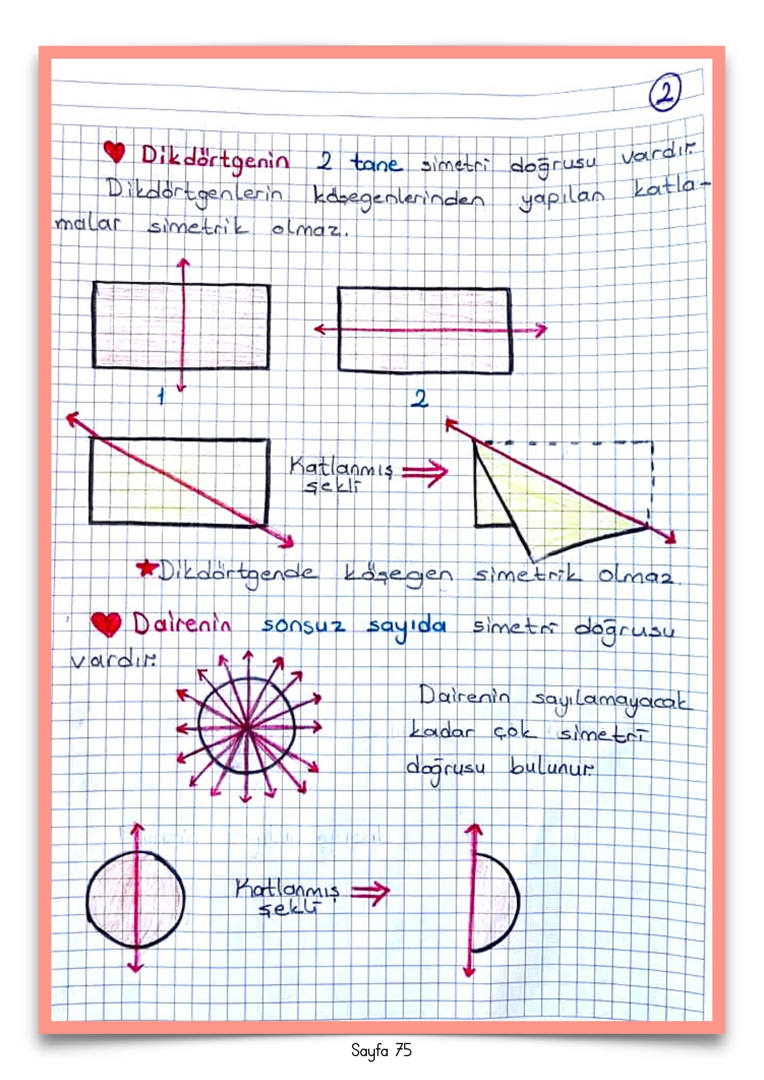 2
Dikdörtgenin 2 tane simetri doğrusu vardır.
Dikdörtgenlerin köşegenlerinden yapılan katla-
malar simetrik olmaz.
1
2
Katlanmış
şekli
Dikdörtgende köşegen simetrik olmaz.
Dairenin sonsuz sayıda simetri doğrusu
vardır.
Dairenin sayılamayacak
kadar çok simetri
doğrusu bulunur.
Katlanmış
şekli
Sayfa 75